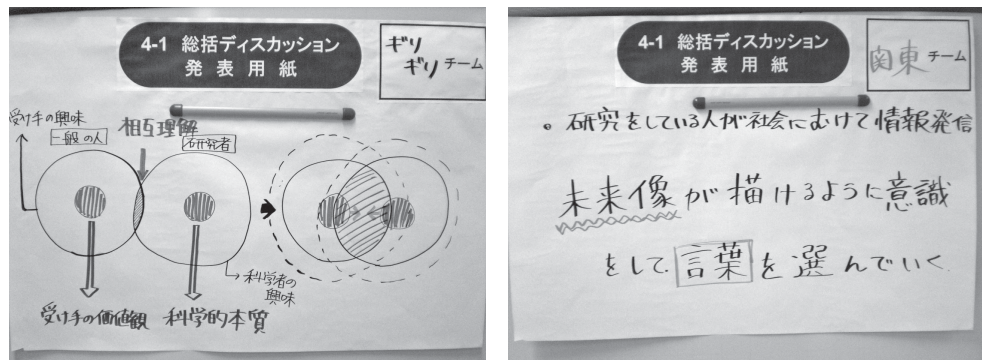 4-1 総括ディスカッション
発表用紙
ギリ
ギリ チーム
受け手の興味
一般の人
相互理解
研究者
科学者の
興味
受け手の価値観
科学的本質
4-1 総括ディスカッション
発表用紙
関東 チーム
。研究をしている人が社会にむけて情報発信
未来像が描けるように意識
をして言葉を選んでいく